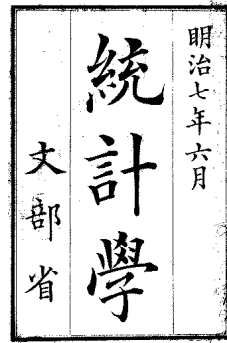 明治七年六月
統計學
文部省